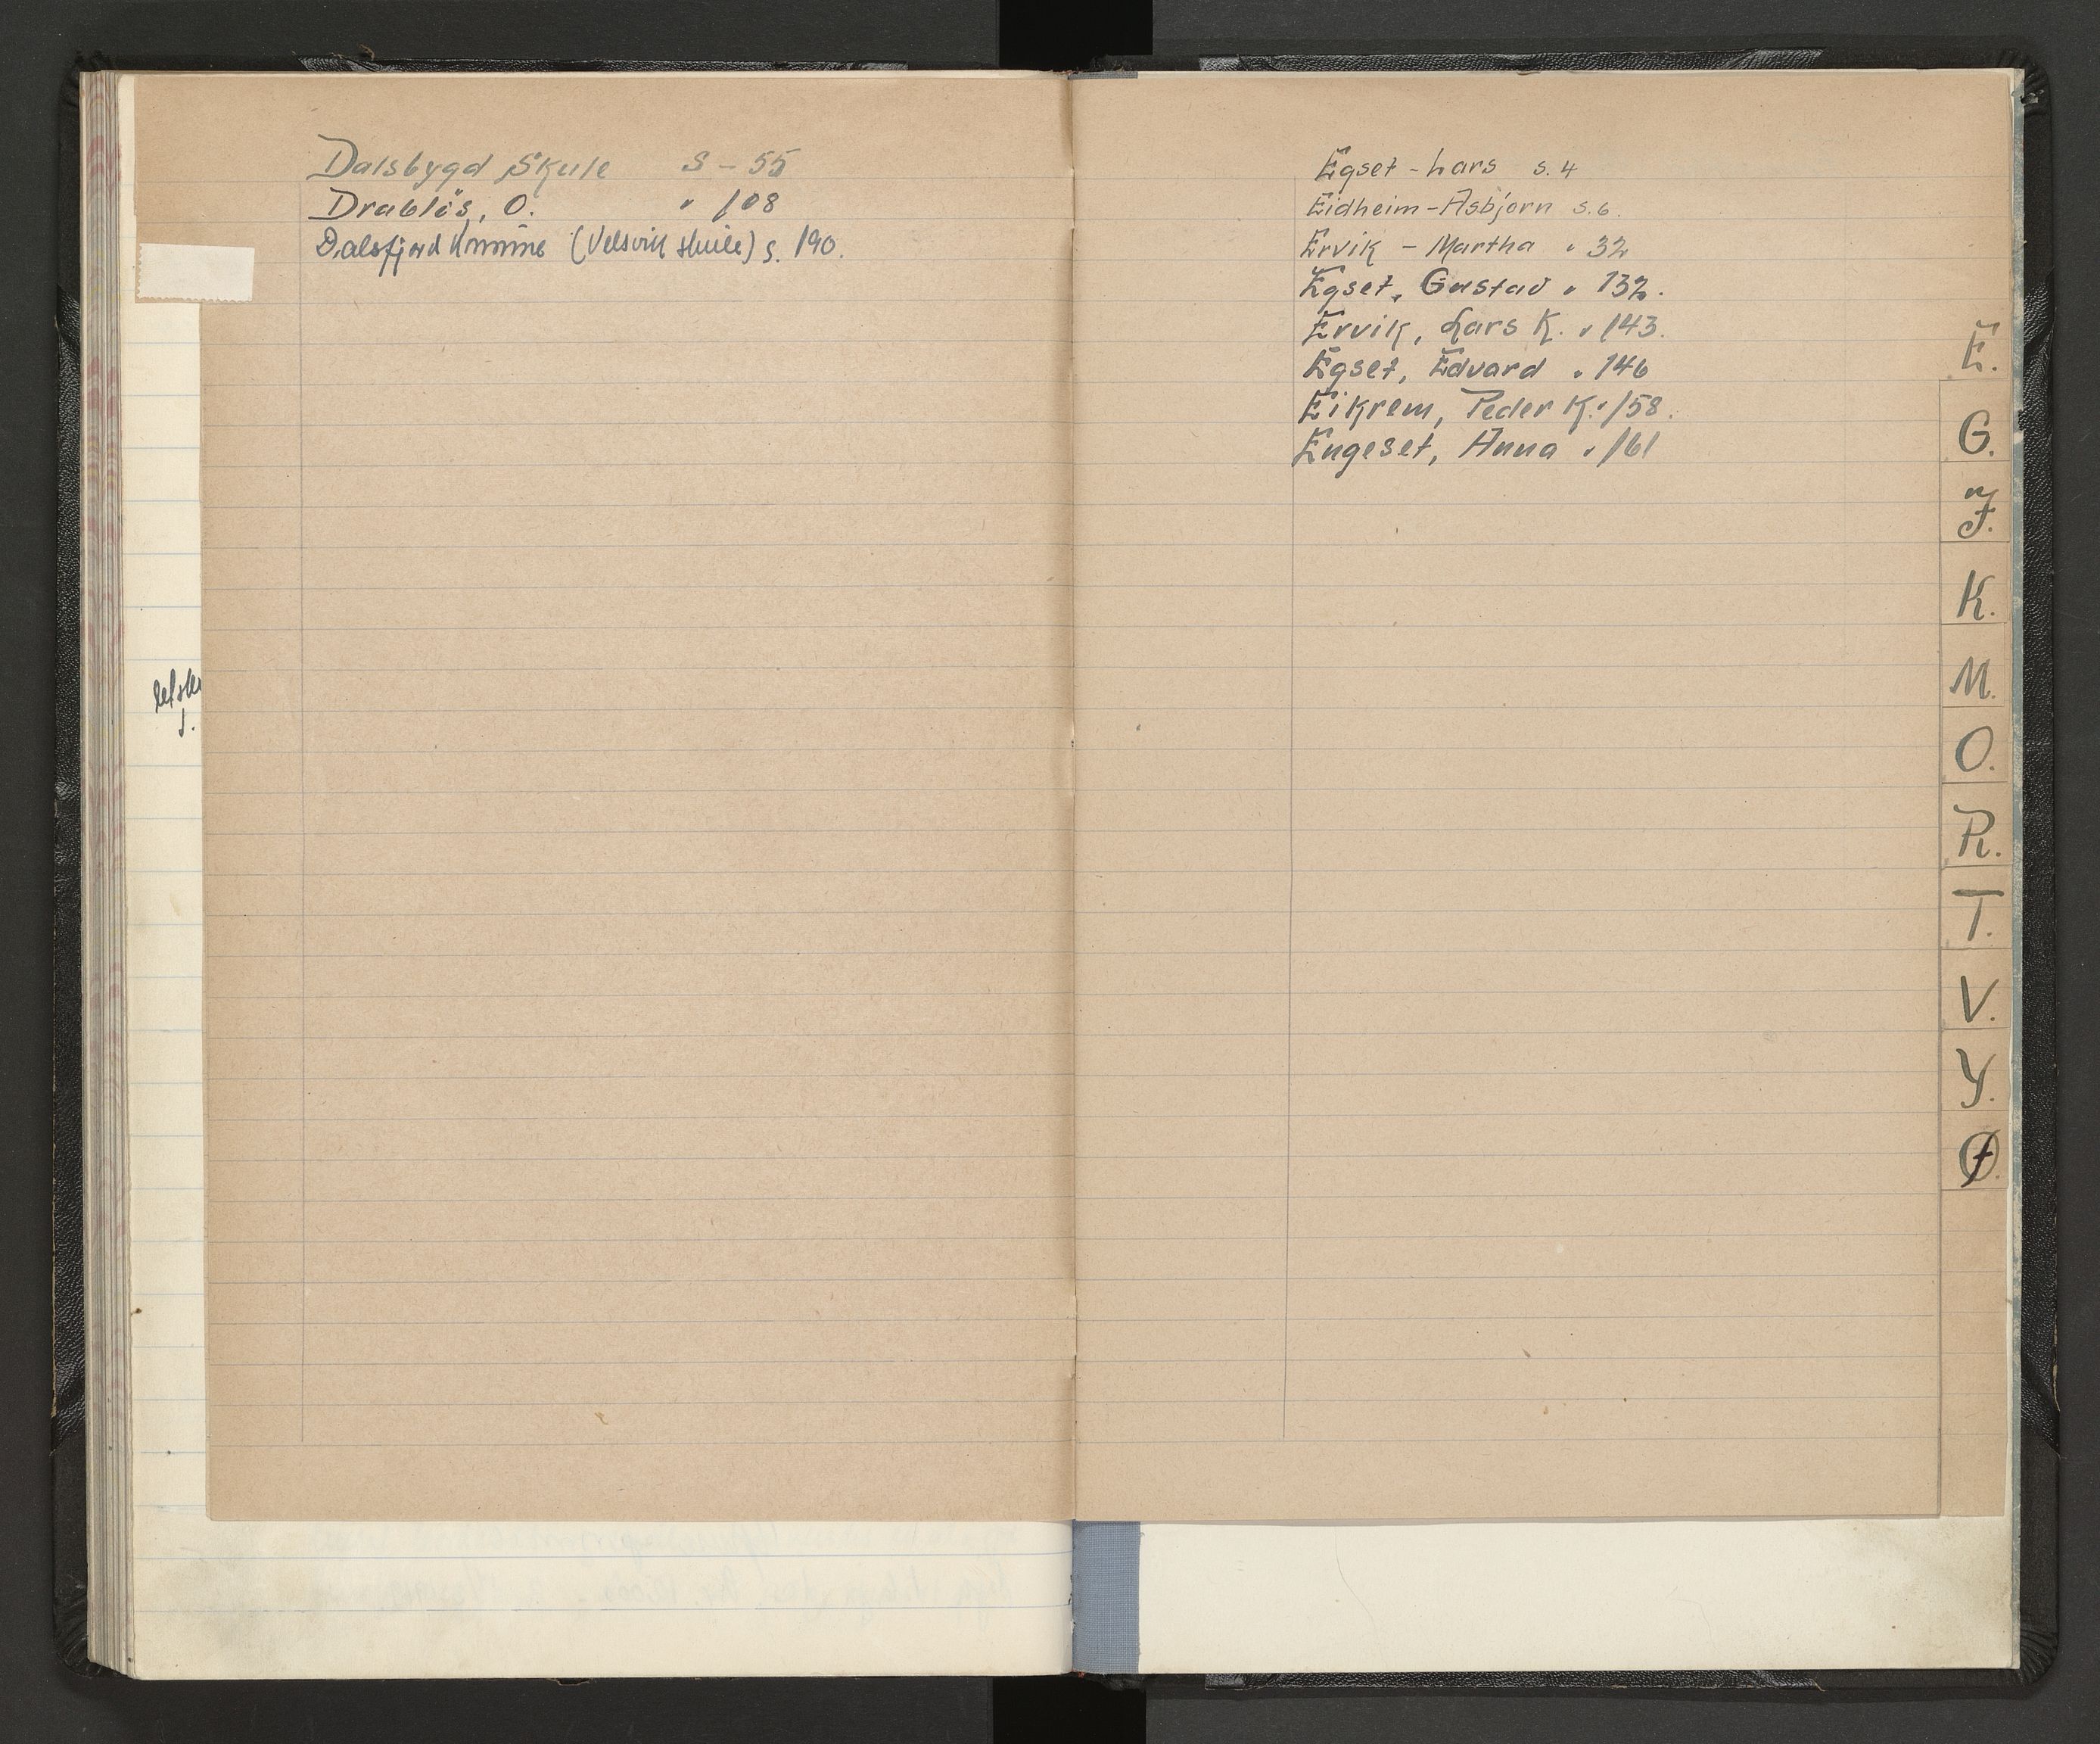 Dalsbygd Skule S - 55
Drabløs, O. " 108
Dalsfjord Kommune (Velsvik skule) s. 190.
Egset - Lars s. 4
Eidheim - Asbjørn s. 6.
Ervik - Martha " 32
Egset, Gustav " 132.
Ervik, Lars K. " 143.
Egset, Edvard " 146
Eikrem, Peder K. " 158.
Engeset, Anna " 161
E.
G.
I.
K.
M.
O.
R.
T.
V.
Y.
Ø.